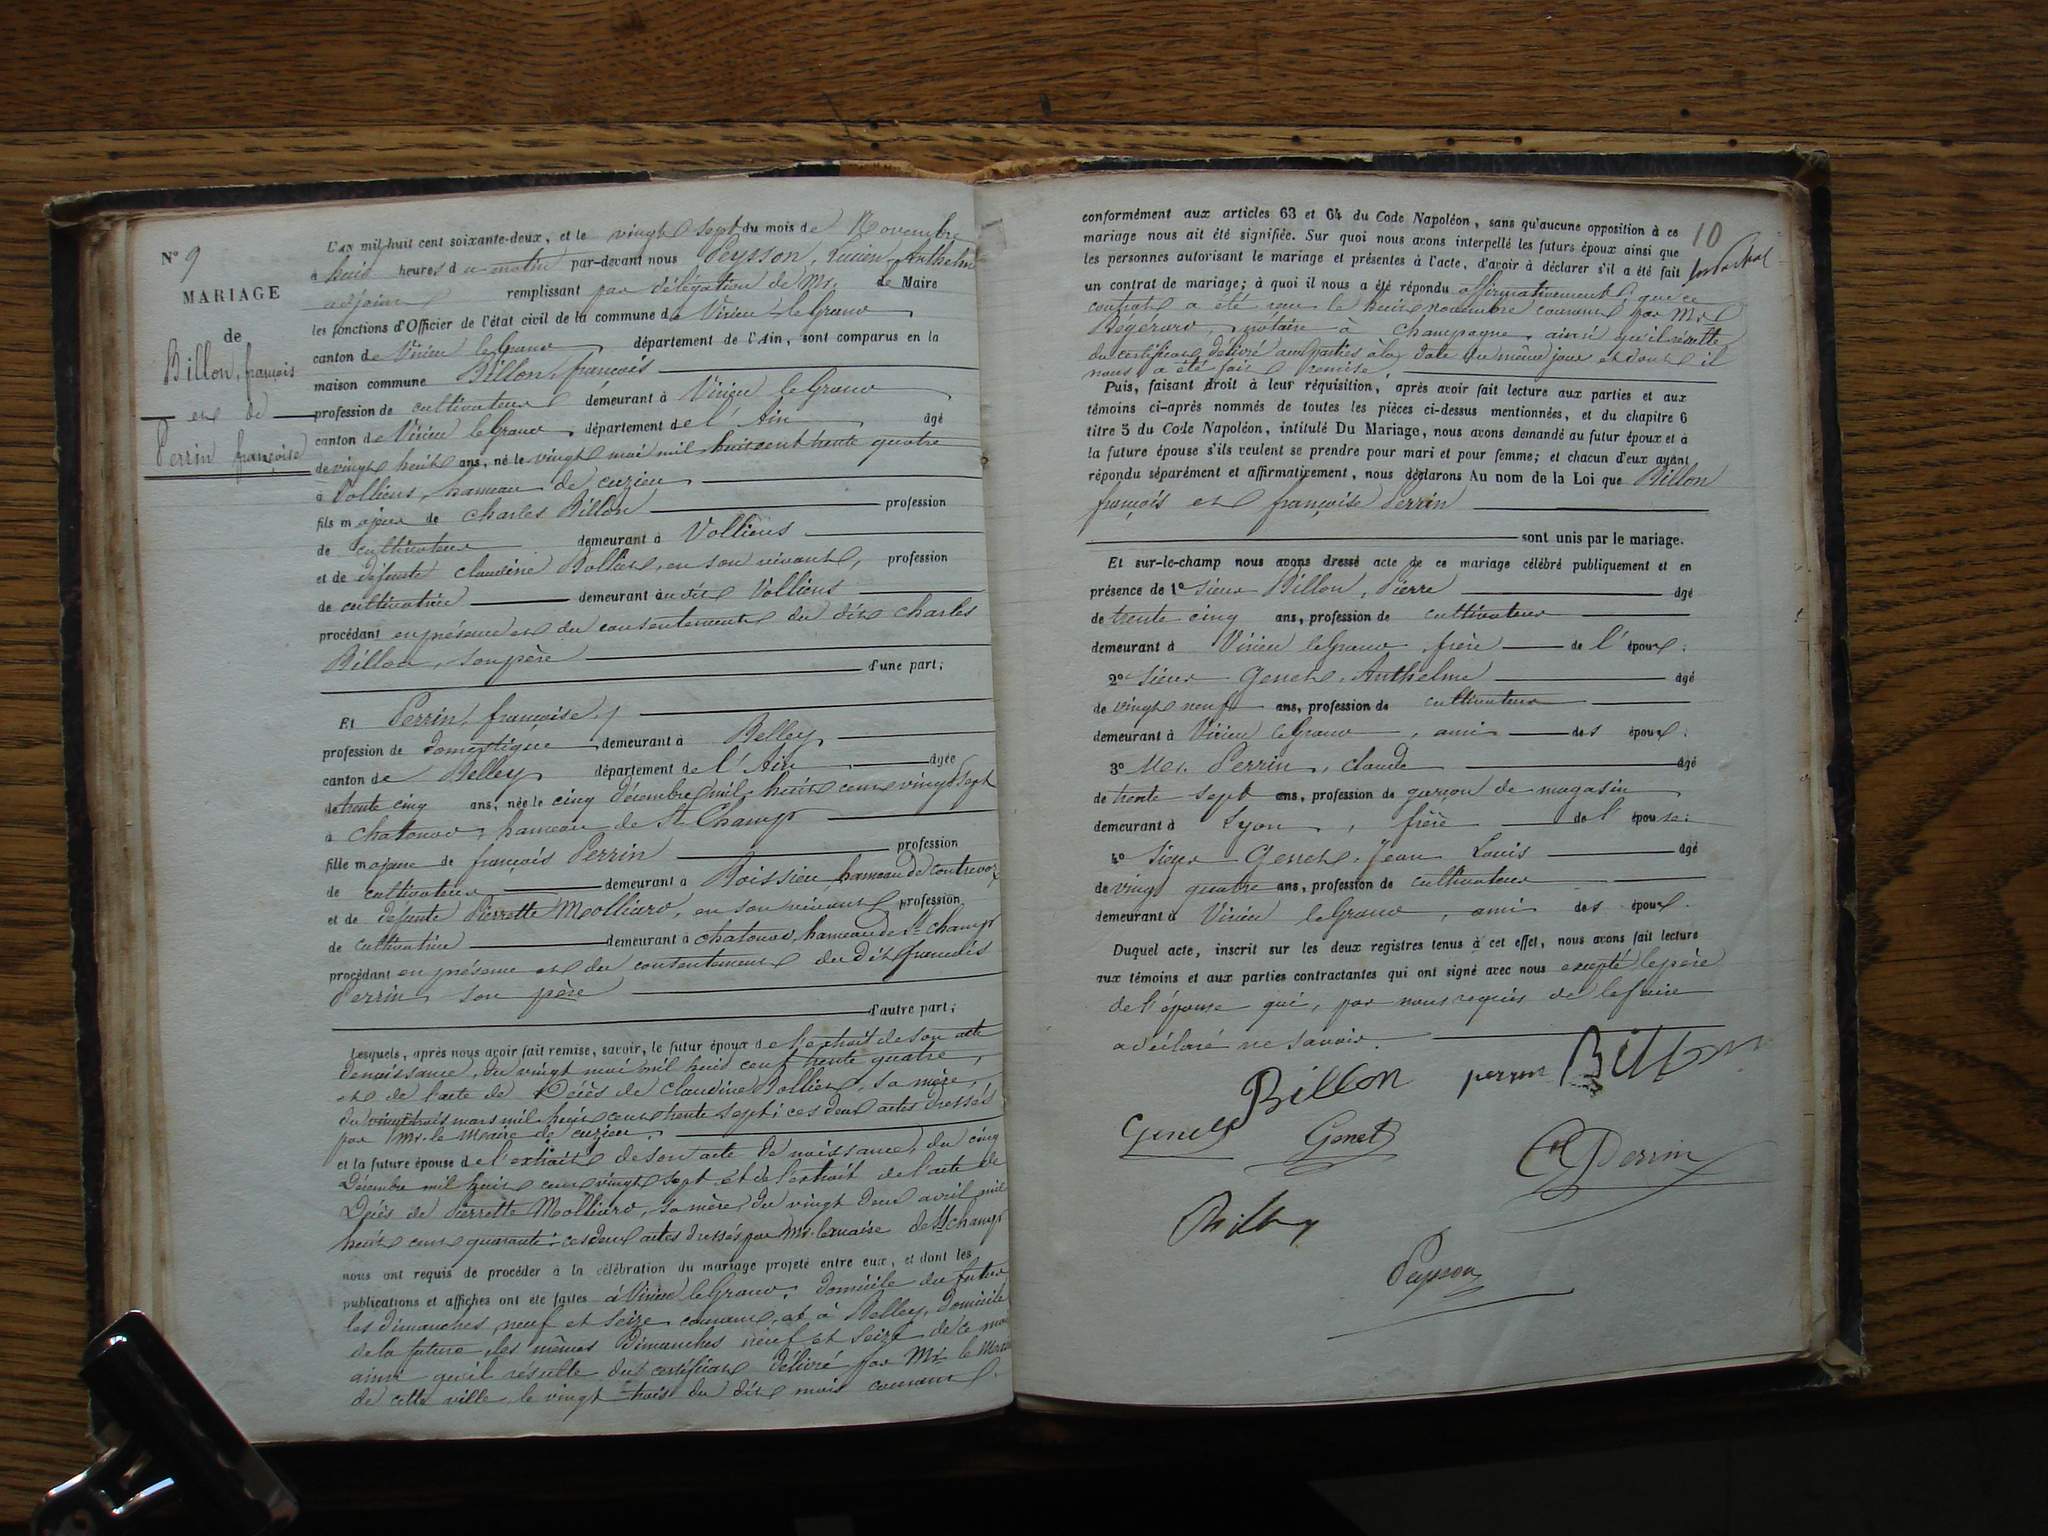 N° 9
MARIAGE
de
Billon, françois
et de
Perrin françoise
L'an mil huit cent soixante-deux, et le vingt sept du mois de Novembre
à huit heures du matin par-devant nous Peysson, Lucien, Anthelme
adjoint remplissant par délégation de Mr. le Maire
les fonctions d'Officier de l'état civil de la commune de Virieu le Grand
canton de Virieu le Grand, département de l'Ain, sont comparus en la
maison commune Billon, françois
profession de cultivateur demeurant à Virieu le Grand
canton de Virieu le Grand, département de l'Ain, âgé
de vingt huit ans, né le vingt mai mil huit cent trente quatre
à Volliens, hameau de cuzieu
fils majeur de Charles Billon profession
de cultivateur demeurant à Volliens
et de défunte claudine Bollier, en son vivant, profession
de cultivatrice demeurant audit Volliens
procédant en présence et du consentement du dit Charles
Billon, son père
d'une part;
Et Perrin, françoise,
profession de domestique demeurant à Belley
canton de Belley, département de l'Ain, âgée
de trente cinq ans, née le cinq décembre mil huit cent vingt sept
à chatonod, hameau de St. Champ
fille majeure de françois Perrin profession
de cultivateur demeurant à Boissieu, hameau de contrevoz
et de défunte Pierrette Molliard, en son vivant profession
de cultivatrice demeurant à chatonod, hameau de St. champ
procédant en présence et du consentement du dit françois
Perrin son père
d'autre part;
Lesquels, après nous avoir fait remise, savoir, le futur époux de l'extrait de son acte
de naissance, du vingt mai mil huit cent trente quatre,
et de l'acte de Décès de Claudine Bollier, sa mère,
du vingt trois mars mil huit cent trente sept; ces deux actes dressés
par Mr. le Maire de cuzieu.
et la future épouse de l'extrait de son acte de naissance, du cinq
Décembre mil huit cent vingt sept et de l'extrait de l'acte de
Décès de Pierrette Molliard, sa mère, du vingt deux avril mil
huit cent quarante; ces deux actes dressés par Mr. le maire de St champ
nous ont requis de procéder à la célébration du mariage projeté entre eux, et dont les
publications et affiches ont été faites à Virieu le Grand, domicile du futur
les dimanches neuf et seize courant, et à Belley, domicile
de la future, les mêmes Dimanches neuf et seize de ce mois
ainsi qu'il résulte du certificat délivré par Mr. le Maire
de cette ville le vingt trois du dit mois courant.
10
conformément aux articles 63 et 64 du Code Napoléon, sans qu'aucune opposition à ce
mariage nous ait été signifiée. Sur quoi nous avons interpellé les futurs époux ainsi que
les personnes autorisant le mariage et présentes à l'acte, d'avoir à déclarer s'il a été fait
un contrat de mariage; à quoi il nous a été répondu affirmativement, que ce
contrat a été reçu le huit novembre courant par Mr.
Bégérard, notaire à Champagne, ainsi qu'il résulte
du certificat délivré aux parties à la date du même jour et dont il
nous a été fait remise.
Puis, faisant droit à leur réquisition, après avoir fait lecture aux parties et aux
témoins ci-après nommés de toutes les pièces ci-dessus mentionnées, et du chapitre 6
titre 5 du Code Napoléon, intitulé Du Mariage, nous avons demandé au futur époux et à
la future épouse s'ils veulent se prendre pour mari et pour femme; et chacun d'eux ayant
répondu séparément et affirmativement, nous déclarons Au nom de la Loi que Billon
françois et françoise Perrin
sont unis par le mariage.
Et sur-le-champ nous avons dressé acte de ce mariage célébré publiquement et en
présence de 1° Sieur Billon, Pierre âgé
de trente cinq ans, profession de cultivateur
demeurant à Virieu le Grand frère de l'époux;
2° Sieur Genet, Anthelme âgé
de vingt neuf ans, profession de cultivateur
demeurant à Virieu le Grand, ami des époux;
3° Mr. Perrin, claude âgé
de trente sept ans, profession de garçon de magasin
demeurant à Lyon, frère de l'épouse;
4° Sieur Genet, Jean Louis âgé
de vingt quatre ans, profession de cultivateur
demeurant à Virieu le Grand, ami des époux.
Duquel acte, inscrit sur les deux registres tenus à cet effet, nous avons fait lecture
aux témoins et aux parties contractantes qui ont signé avec nous excepté le père
de l'épouse qui, par nous requis de le faire
a déclaré ne savoir.
Billon perrin Billon
Genet Genet C Perrin
Billon
Peysson